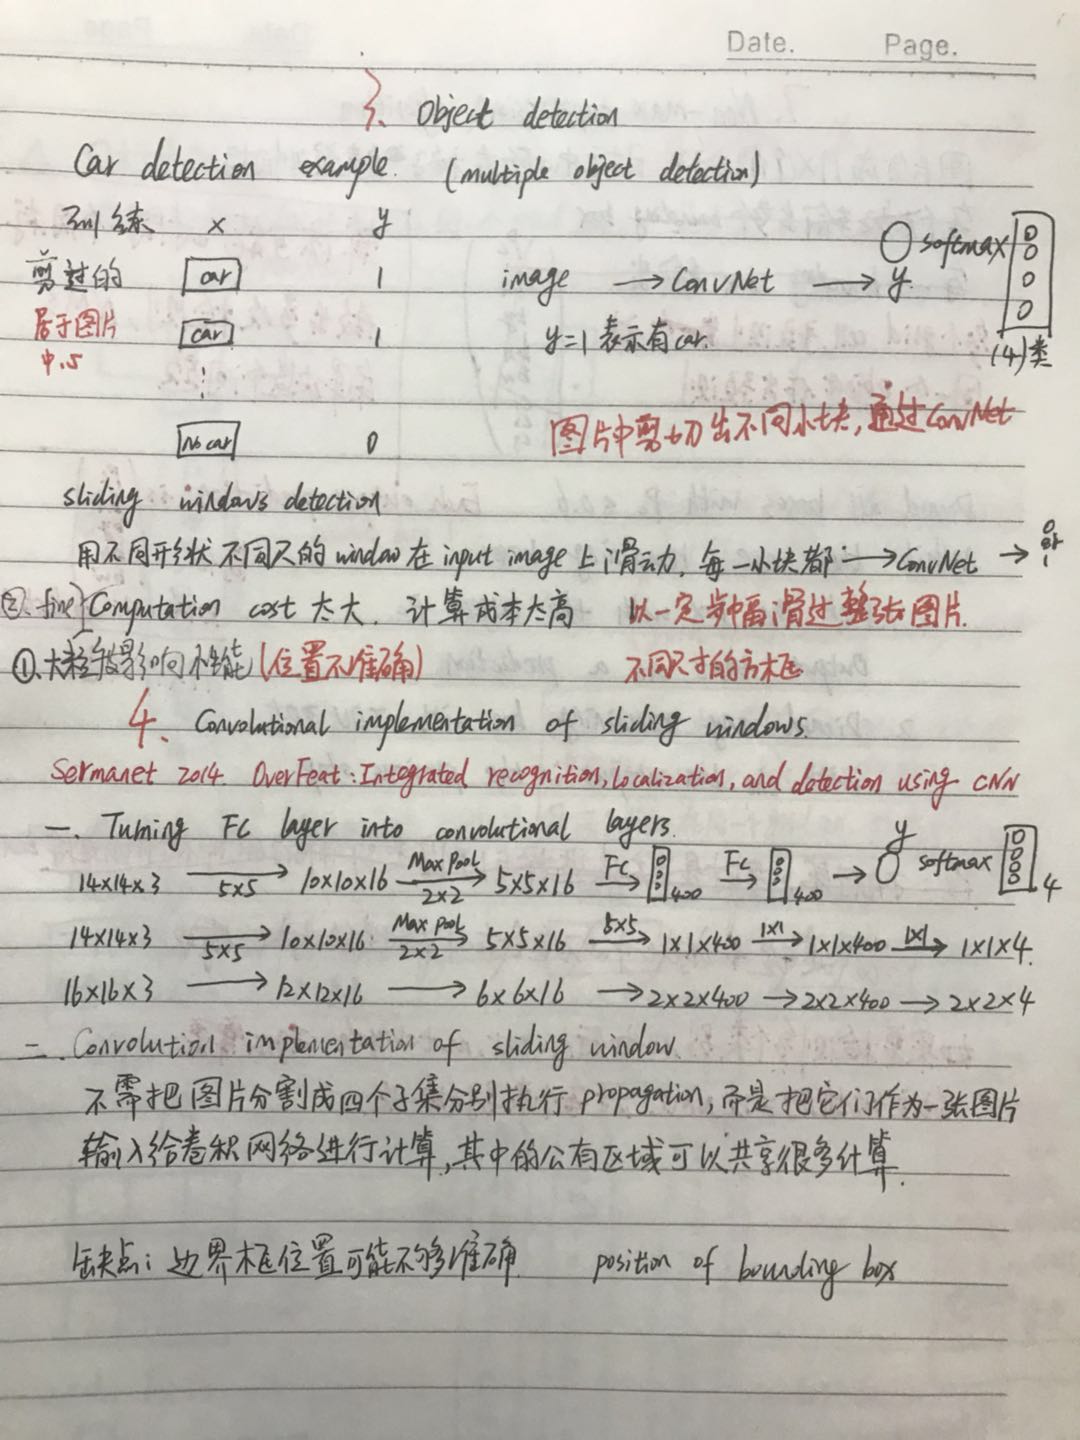 Date. Page.
3. Object detection
Car detection example. (multiple object detection)
训练 x y
softmax
剪过的 car 1 image → ConvNet → y
居于图片 car 1 y=1 表示有car.
中心 (4)类
⋮
No car 0 图片中剪切出不同小块, 通过ConvNet
sliding windows detection
用不同形状不同尺的window在input image上滑动, 每一小块都 → ConvNet → 0 or 1
②. fine Computation cost 太大. 计算成本太高 以一定步幅滑过整张图片.
①. 大粒度影响性能 (位置不准确) 不同尺寸的方框
4. Convolutional implementation of sliding windows.
Sermanet 2014. OverFeat: Integrated recognition, localization, and detection using CNN
一. Turning FC layer into convolutional layers.
14×14×3 →5×5 10×10×16 Max Pool→2×2 5×5×16 FC→ 400 FC→ 400 → y softmax 4
14×14×3 →5×5 10×10×16 Max pool→2×2 5×5×16 5×5→ 1×1×400 1×1→ 1×1×400 1×1→ 1×1×4.
16×16×3 → 12×12×16 → 6×6×16 → 2×2×400 → 2×2×400 → 2×2×4
二. Convolution implementation of sliding window.
不需把图片分割成四个子集分别执行propagation, 而是把它们作为一张图片
输入给卷积网络进行计算, 其中的公有区域可以共享很多计算.
缺点: 边界框位置可能不够准确. position of bounding box